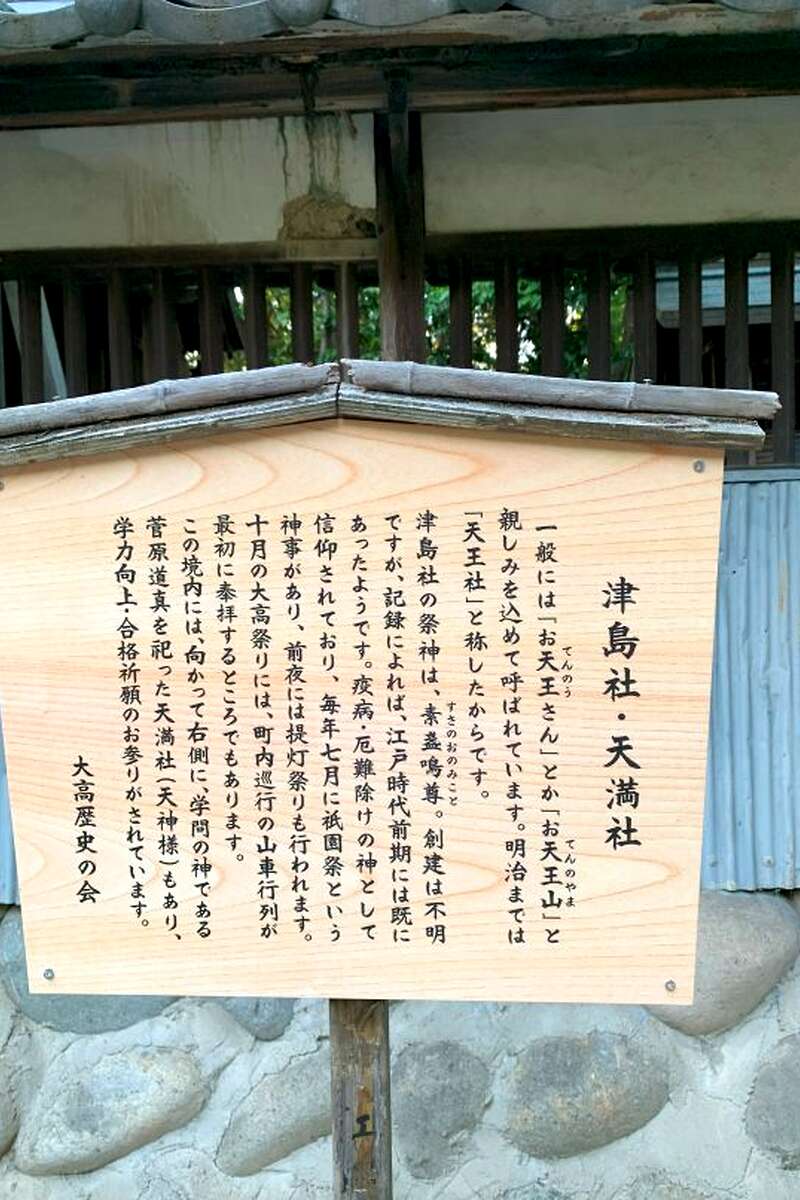 津島社・天満社
一般には「お天王さん」とか「お天王山」と
てんのう
てんのやま
親しみを込めて呼ばれています。明治までは
「天王社」と称したからです。
津島社の祭神は、素盞嗚尊。創建は不明
すさのおのみこと
ですが、記録によれば、江戸時代前期には既に
あったようです。疫病・厄難除けの神として
信仰されており、毎年七月に祇園祭という
神事があり、前夜には提灯祭りも行われます。
十月の大高祭りには、町内巡行の山車行列が
最初に奉拝するところでもあります。
この境内には、向かって右側に、学問の神である
菅原道真を祀った天満社(天神様)もあり、
学力向上・合格祈願のお参りがされています。
大高歴史の会
エ